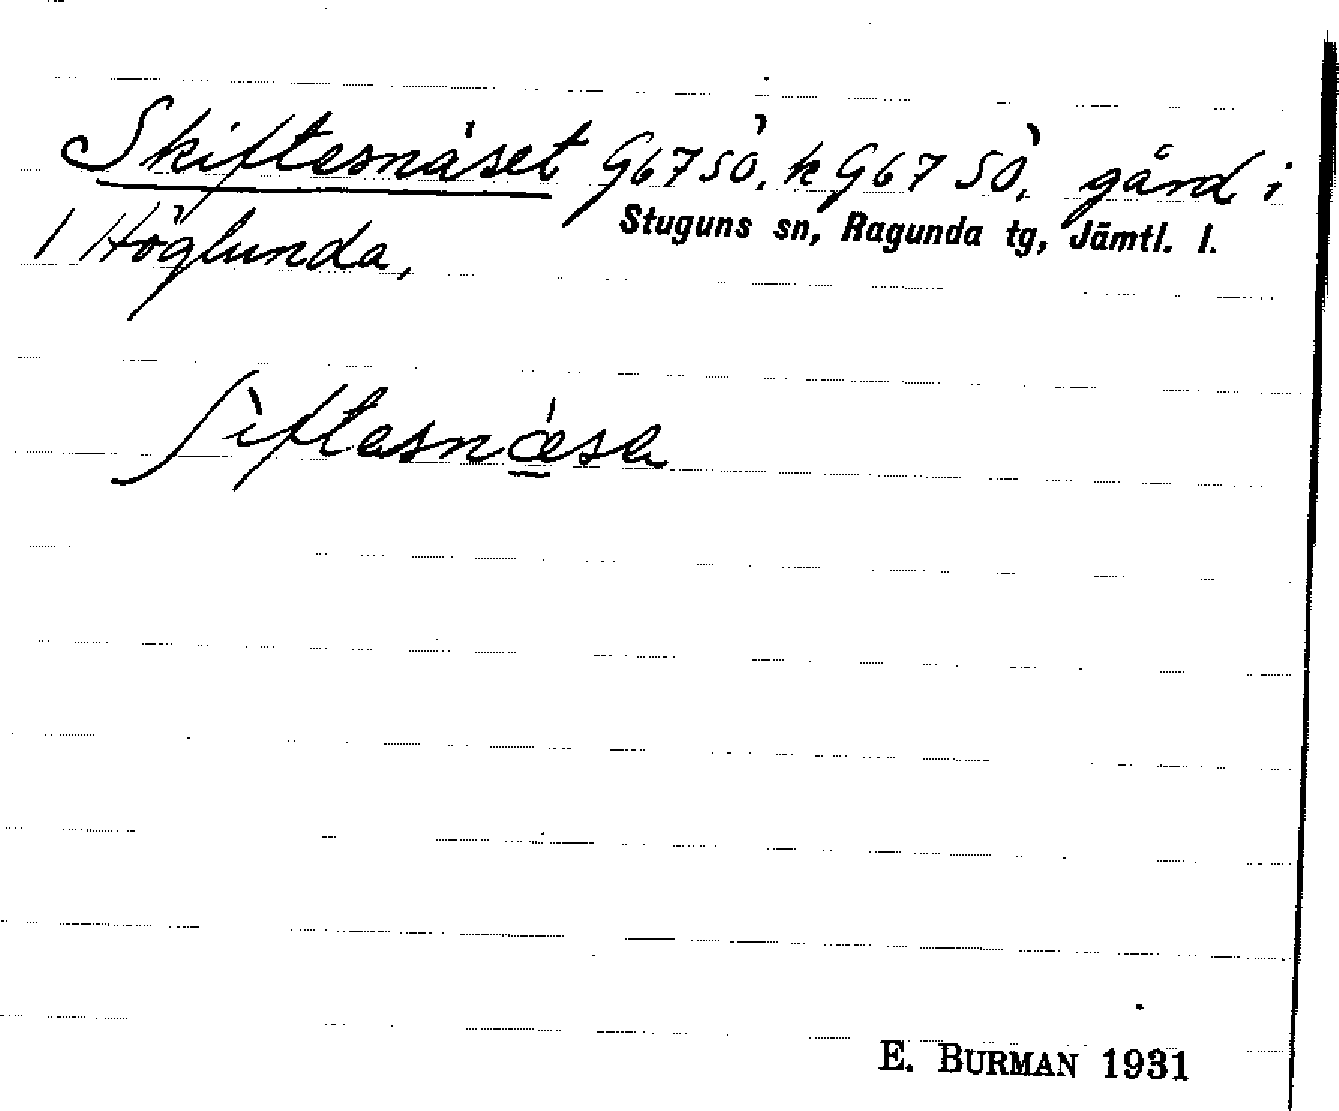 Skiftesnäset G67SÖ, k G67 SÖ, gård i
Stuguns sn, Ragunda tg, Jämtl. l.
1 Höglunda,
ʃìftasnǽsa
E. BURMAN 1931